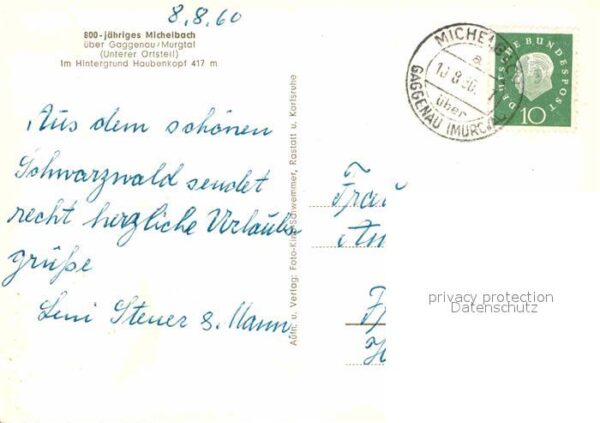 8.8.60
800-jähriges Michelbach
über Gaggenau/Murgtal
(Unterer Ortsteil)
Im Hintergrund Haubenkopf 417 m
Aus dem schönen
Schwarzwald sendet
recht herzliche Urlaubs
grüße
Leni Steuer & Mann
Aufn. u. Verlag: Foto-Kino-Schwemmer, Rastatt u. Karlsruhe
über
GAGGENAU (MURGTAL
DEUTSCHE BUNDESPOST
10
Frau
privacy protection
Datenschutz